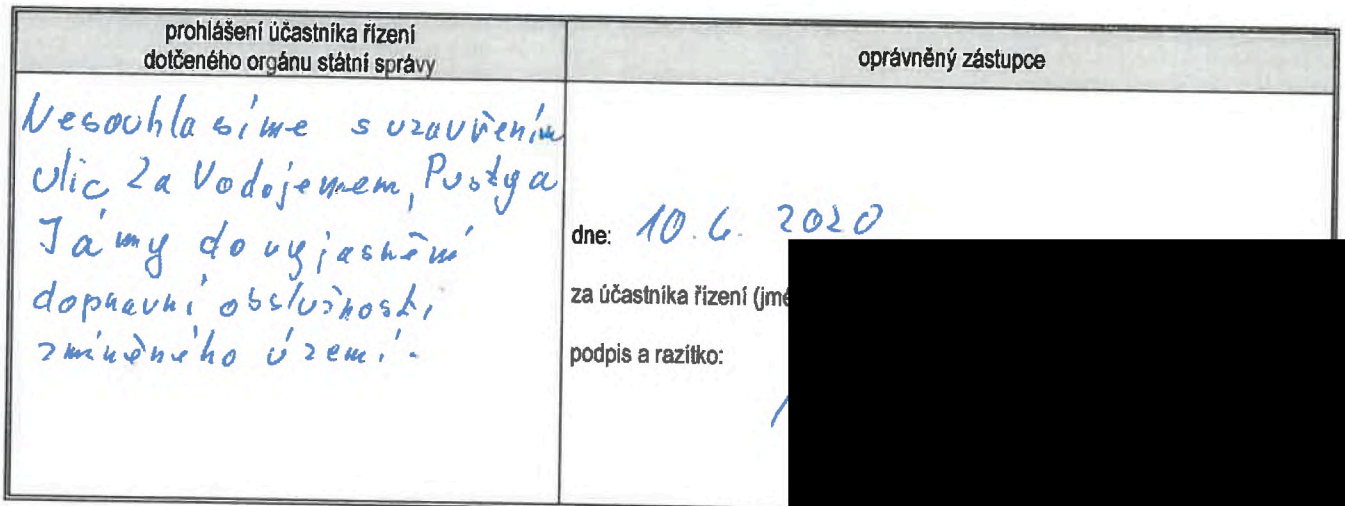 prohlášení účastníka řízení
dotčeného orgánu státní správy
oprávněný zástupce
Nesouhlasíme s uzavřením
ulic Za Vodojemem, Pustý a
Jámy do vyjasnění
dopravní obslužnosti
zmíněného území.
dne: 10.6. 2020
za účastníka řízení (jmé
podpis a razítko: